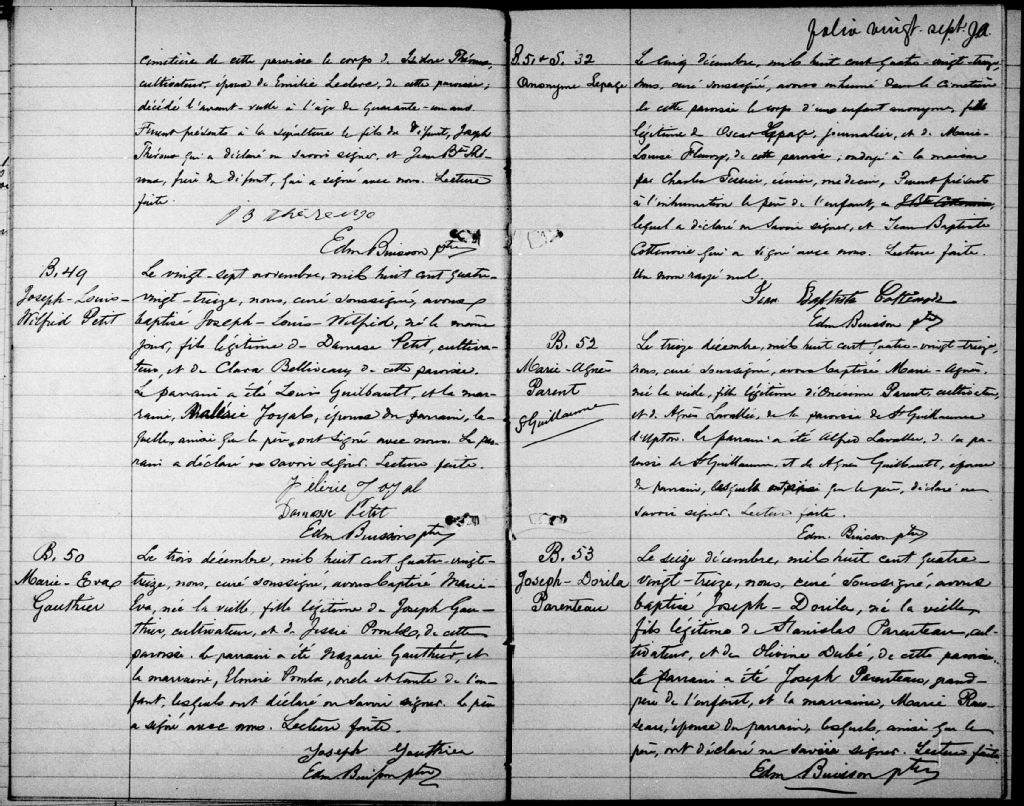 cimetière de cette paroisse le corps d. Isidore Théroux,
cultivateur, époux de Emilie Leclerc, de cette paroisse;
décédé l'avant-veille à l'âge de quarante-un ans.
Furent présents à la sépulture le fils du défunt, Joseph
Théroux qui a déclaré ne savoir signer, et Jean Bte Thé-
roux, frère du défunt, qui a signé avec nous. Lecture
faite.
J B Théroux
Edm Buisson ptre
B. 49
Joseph-Louis-
Wilfrid Petit
Le vingt-sept novembre, mil huit cent quatre-
vingt-treize, nous, curé soussigné, avons
baptisé Joseph-Louis-Wilfrid, né le même
jour, fils légitime de Damase Petit, cultiva-
teur, et de Clara Belliveau de cette paroisse.
Le parrain a été Louis Guilbault, et la mar-
raine, Joyal, épouse du parrain, la-
quelle, ainsi que le père, ont signé avec nous. Le par-
rain a déclaré ne savoir signer. Lecture faite.
Joyal
Damasse Petit
Edm Buisson ptre
B. 50
Marie-Eva
Gauthier
Le trois décembre, mil huit cent quatre-vingt-
treize, nous, curé soussigné, avons baptisé Marie-
Eva, née la veille, fille légitime de Joseph Gau-
thier, cultivateur, et de Jessie Proulx, de cette
paroisse. Le parrain a été Nazaire Gauthier, et
la marraine, Elmire Proulx, oncle et tante de l'en-
fant, lesquels ont déclaré ne savoir signer. Le père
a signé avec nous. Lecture faite.
Joseph Gauthier
Edm Buisson ptre
folio vingt-sept.
B. 51 & S. 32
Anonyme Lepage
Le cinq décembre, mil huit cent quatre-vingt-treize,
nous, curé soussigné, avons inhumé dans le cimetière
de cette paroisse le corps d'un enfant anonyme, fils
légitime de Oscar Lepage, journalier, et de Marie-
Louise Fleury, de cette paroisse; ondoyé à la maison
par Charles Tessier, écuier, médecin. Furent présents
à l'inhumation le père de l'enfant,
lequel a déclaré ne savoir signer, et Jean Baptiste
Cottenoire qui a signé avec nous. Lecture faite.
Un nom rayé nul.
Jean Baptiste Cottenoir
Edm Buisson ptre
B. 52
Marie-Agnès
Parent
St Guillaume
Le treize décembre, mil huit cent quatre-vingt-treize,
nous, curé soussigné, avons baptisé Marie-Agnès,
née la veille, fille légitime d'Onésime Parent, cultivateur,
et d'Agnès Lavallée, de la paroisse de St Guillaume
d'Upton. Le parrain a été Alfred Lavallée, de la pa-
roisse de St Guillaume, et de Agnès Guilbault, épouse
du parrain, lesquels ainsi que le père, déclaré ne
savoir signer. Lecture faite.
Edm. Buisson ptre
B. 53
Joseph-Dorila
Parenteau
Le seize décembre, mil huit cent quatre-
vingt-treize, nous, curé soussigné, avons
baptisé Joseph-Dorila, né la veille
fils légitime de Stanislas Parenteau, cul-
tivateur, et de Olivine Dubé, de cette paroisse.
Le parrain a été Joseph Parenteau, grand-
père de l'enfant, et la marraine, Marie Rous-
seau, épouse du parrain, lesquels, ainsi que le
père, ont déclaré ne savoir signer. Lecture faite.
Edm Buisson ptre